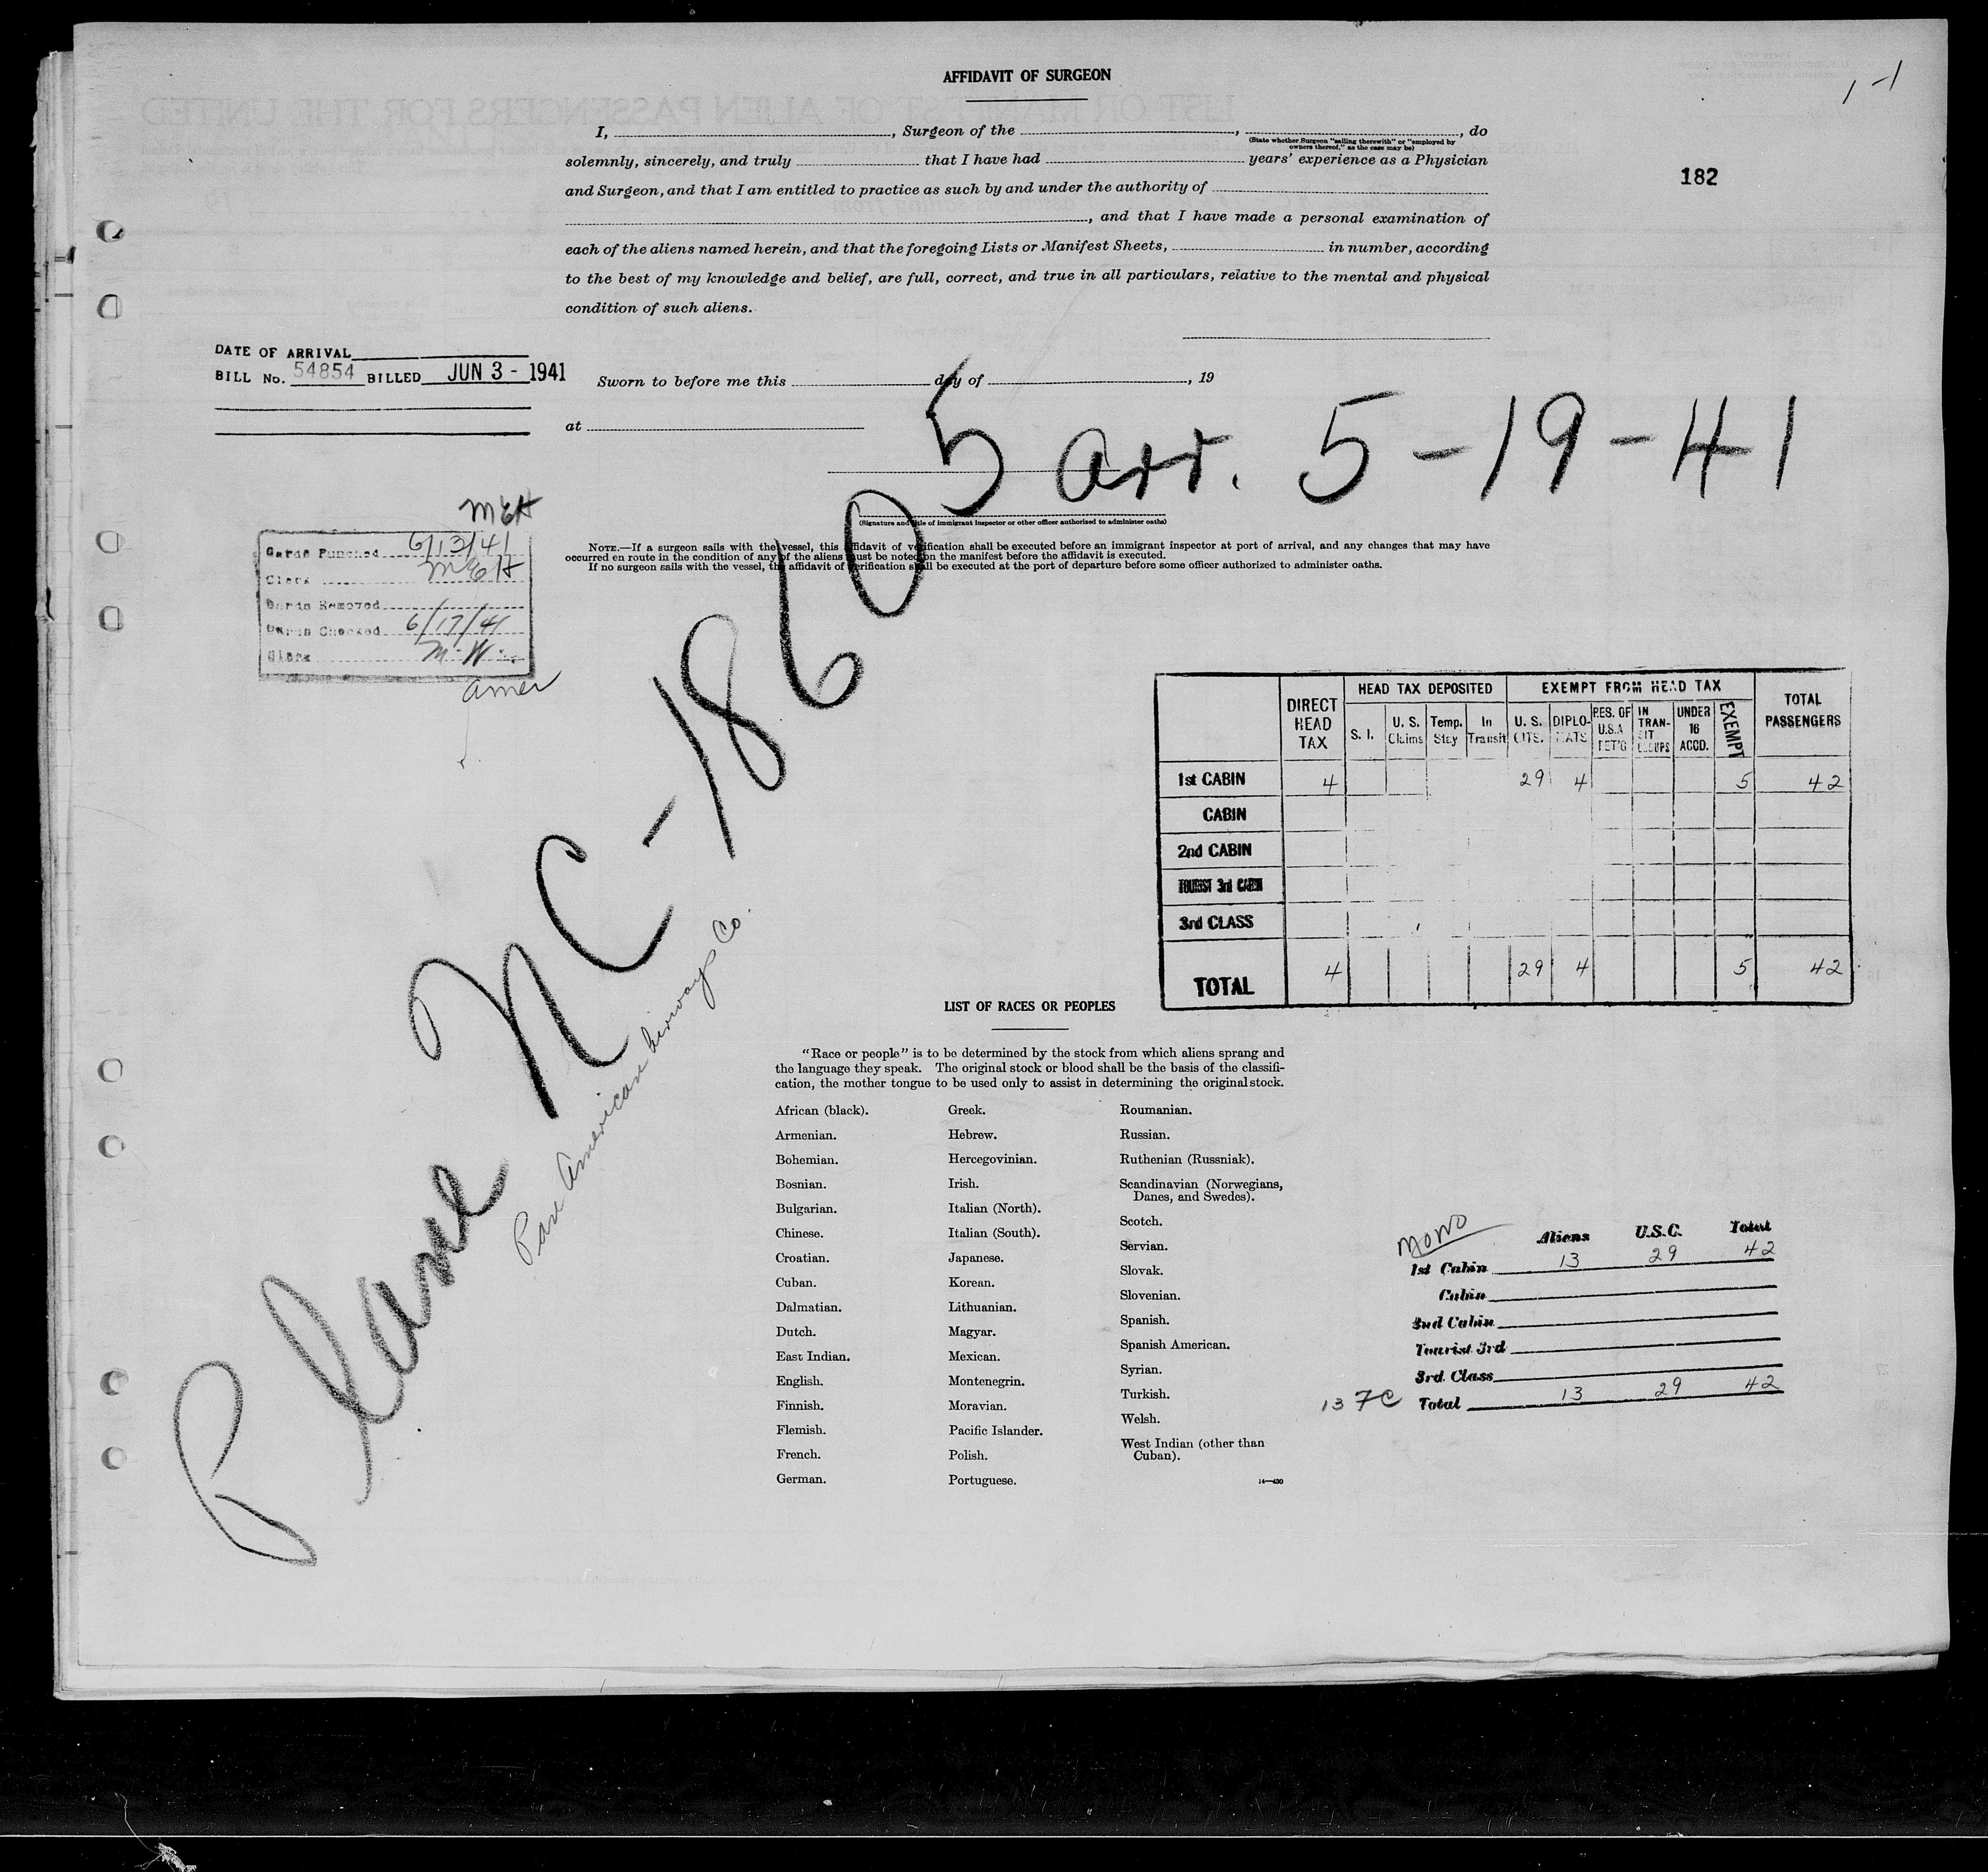 AFFIDAVIT OF SURGEON
1-1
I, , Surgeon of the , , do
(State whether Surgeon "sailing therewith" or "employed by owners thereof," as the case may be)
solemnly, sincerely, and truly that I have had years' experience as a Physician
182
and Surgeon, and that I am entitled to practice as such by and under the authority of
, and that I have made a personal examination of
each of the aliens named herein, and that the foregoing Lists or Manifest Sheets, in number, according
to the best of my knowledge and belief, are full, correct, and true in all particulars, relative to the mental and physical
condition of such aliens.
DATE OF ARRIVAL
BILL No. 54854 BILLED JUN 3 - 1941
Sworn to before me this day of , 19
at
Plane NC-18605 arr. 5-19-41
Pan American Airways Co.
(Signature and title of immigrant inspector or other officer authorized to administer oaths)
NOTE.—If a surgeon sails with the vessel, this affidavit of verification shall be executed before an immigrant inspector at port of arrival, and any changes that may have
occurred en route in the condition of any of the aliens must be noted on the manifest before the affidavit is executed.
If no surgeon sails with the vessel, the affidavit of verification shall be executed at the port of departure before some officer authorized to administer oaths.
MEH
Cards Punched 6/13/41
Clerk MEH
Cards Removed
Cards Checked 6/17/41
Clerk M.W.
amer
DIRECT HEAD TAX
HEAD TAX DEPOSITED
EXEMPT FROM HEAD TAX
TOTAL PASSENGERS
S. I. U. S. Claims Temp. Stay In Transit U. S. CITS. DIPLOMATS RES. OF U.S.A RET'G IN TRANSIT UNDER 16 ACCD. EXEMPT
1st CABIN 4 29 4 5 42
CABIN
2nd CABIN
TOURIST 3rd CABIN
3rd CLASS
TOTAL 4 29 4 5 42
LIST OF RACES OR PEOPLES
"Race or people" is to be determined by the stock from which aliens sprang and
the language they speak. The original stock or blood shall be the basis of the classifi-
cation, the mother tongue to be used only to assist in determining the original stock.
African (black).
Armenian.
Bohemian.
Bosnian.
Bulgarian.
Chinese.
Croatian.
Cuban.
Dalmatian.
Dutch.
East Indian.
English.
Finnish.
Flemish.
French.
German.
Greek.
Hebrew.
Hercegovinian.
Irish.
Italian (North).
Italian (South).
Japanese.
Korean.
Lithuanian.
Magyar.
Mexican.
Montenegrin.
Moravian.
Pacific Islander.
Polish.
Portuguese.
Roumanian.
Russian.
Ruthenian (Russniak).
Scandinavian (Norwegians,
Danes, and Swedes).
Scotch.
Servian.
Slovak.
Slovenian.
Spanish.
Spanish American.
Syrian.
Turkish.
Welsh.
West Indian (other than
Cuban).
14—430
Aliens U.S.C. Total
1st Cabin 13 29 42
Cabin
2nd Cabin
Tourist 3rd
3rd Class
13 7C Total 13 29 42